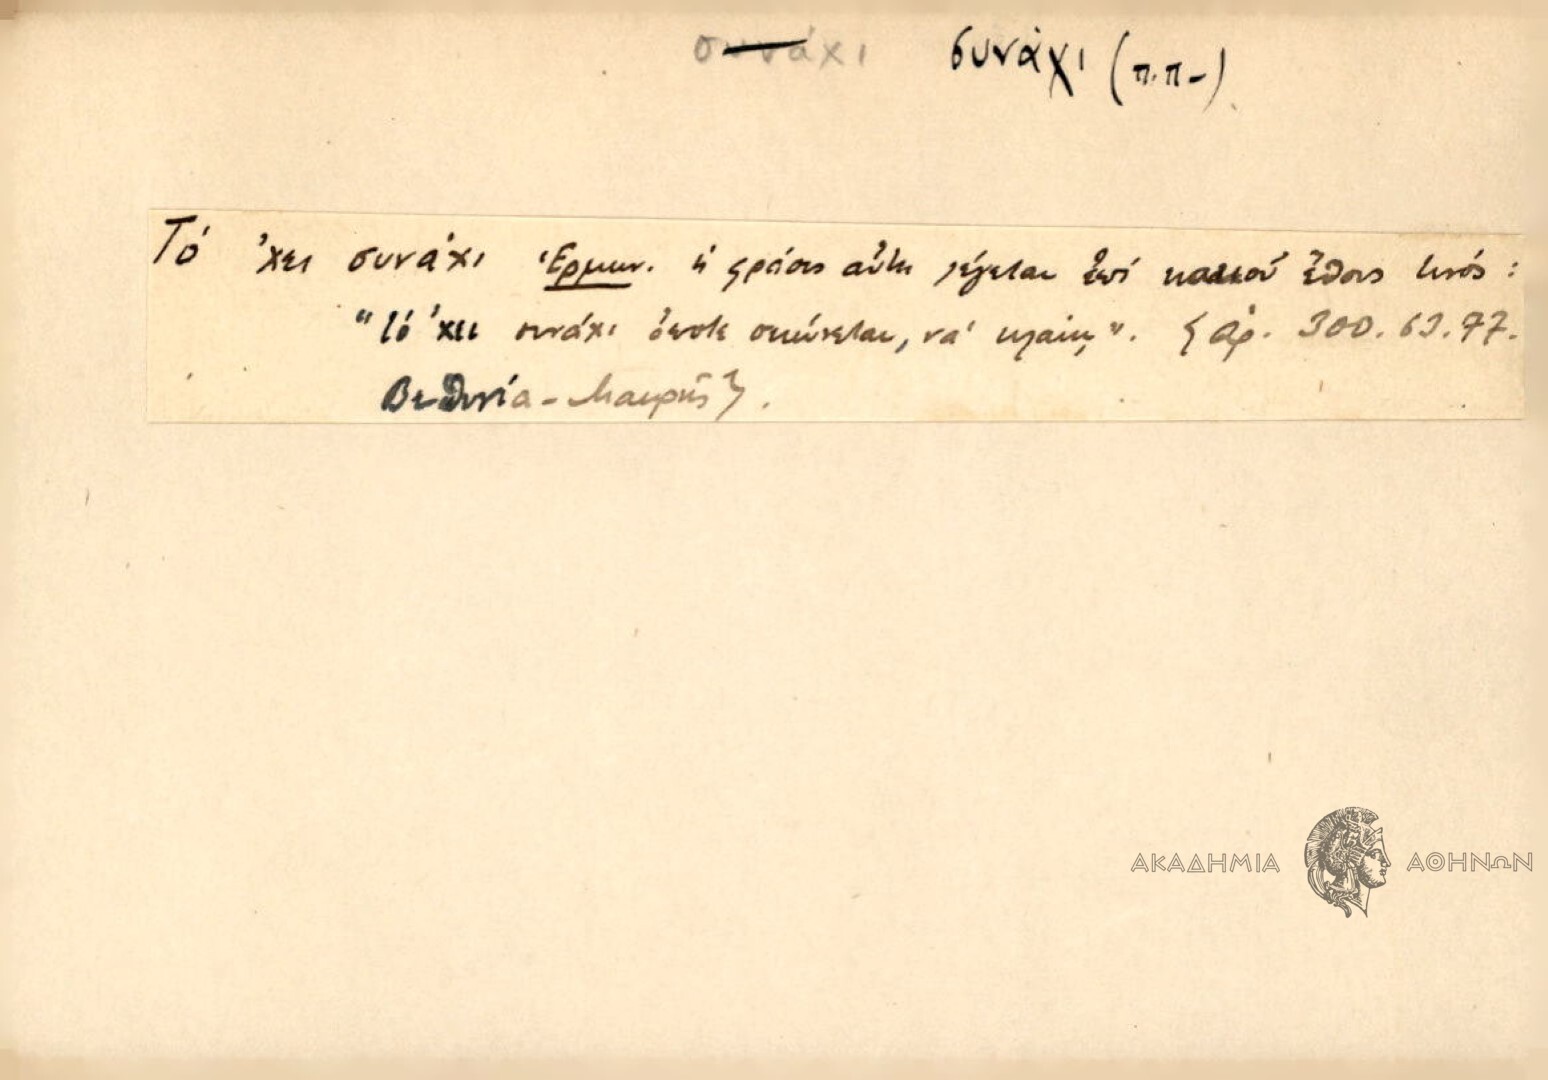 συνάχι συνάχι (π.π-)
Τό 'χει συνάχι Ἑρμην. ἡ φράσις αὕτη λέγεται ἐπί κακοῦ ἔθους τινός :
"τό 'χει συνάχι ὅποτε σηκώνεται, νά κλαίῃ". {Αρ. 300. 63. 77.
Βιθυνία - Μακρῆς}.
ΑΚΑΔΗΜΙΑ ΑΘΗΝΩΝ